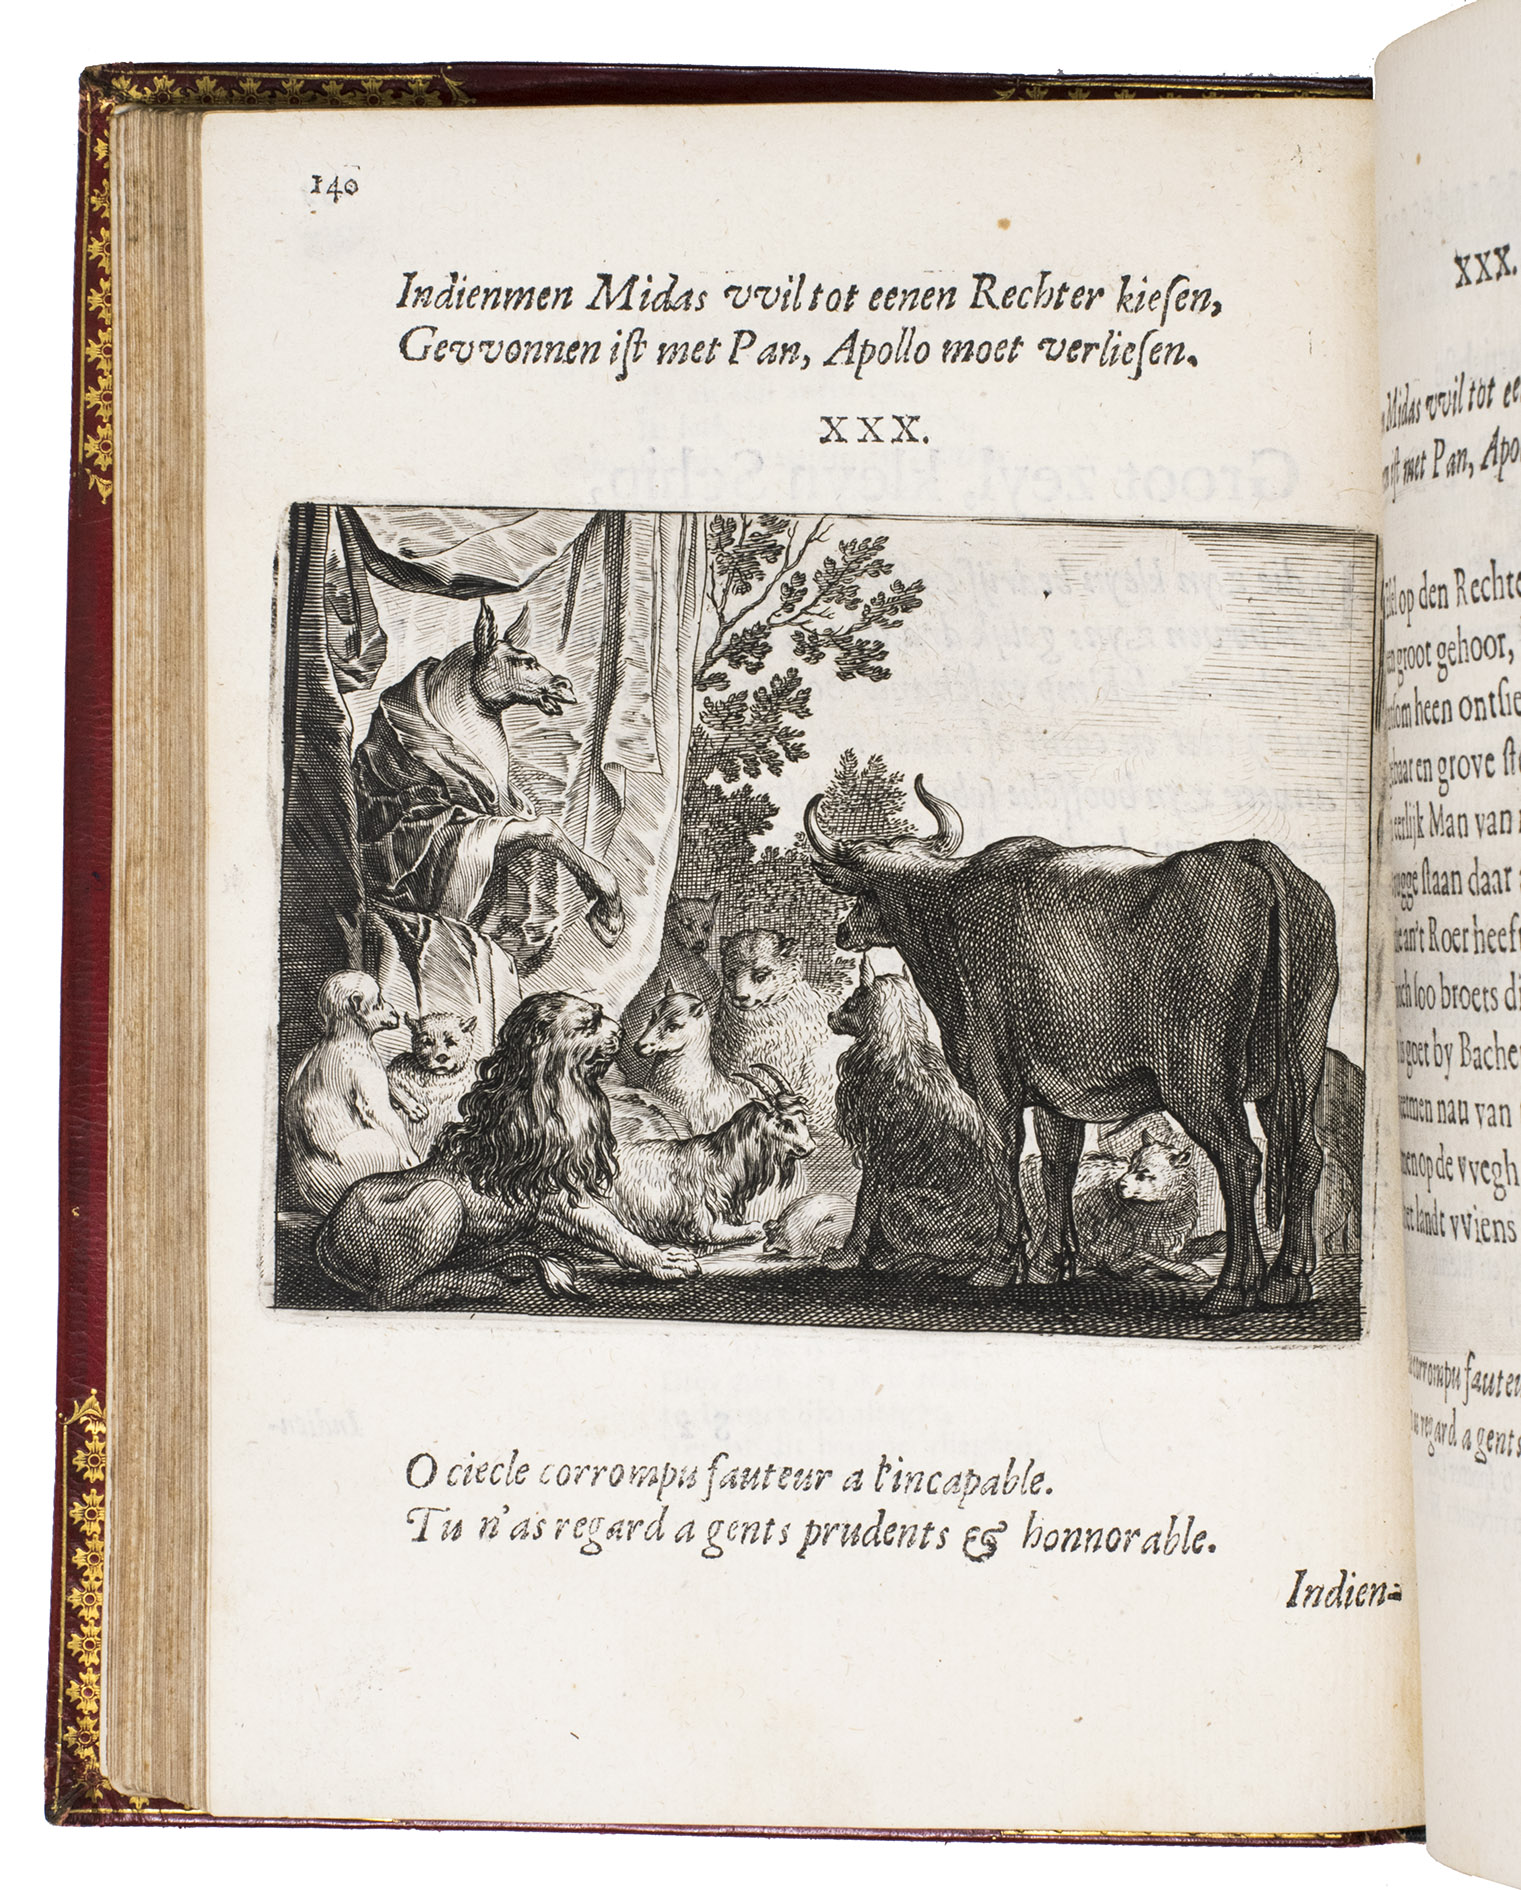 140
Indienmen Midas vvil tot eenen Rechter kieſen,
Gevvonnen iſt met Pan, Apollo moet verlieſen.
XXX.
O ciecle corrompu fauteur a l'incapable.
Tu n'as regard a gents prudents & honnorable.
Indien-
XXX.
Midas vvil tot
iſt met Pan,
op den
groot gehoor,
heen
en grove
Man van
ſtaan daar
Roer
ſoo broets
goet by
nau van
op de vvegh
landt VViens
corrompu
regard a gents